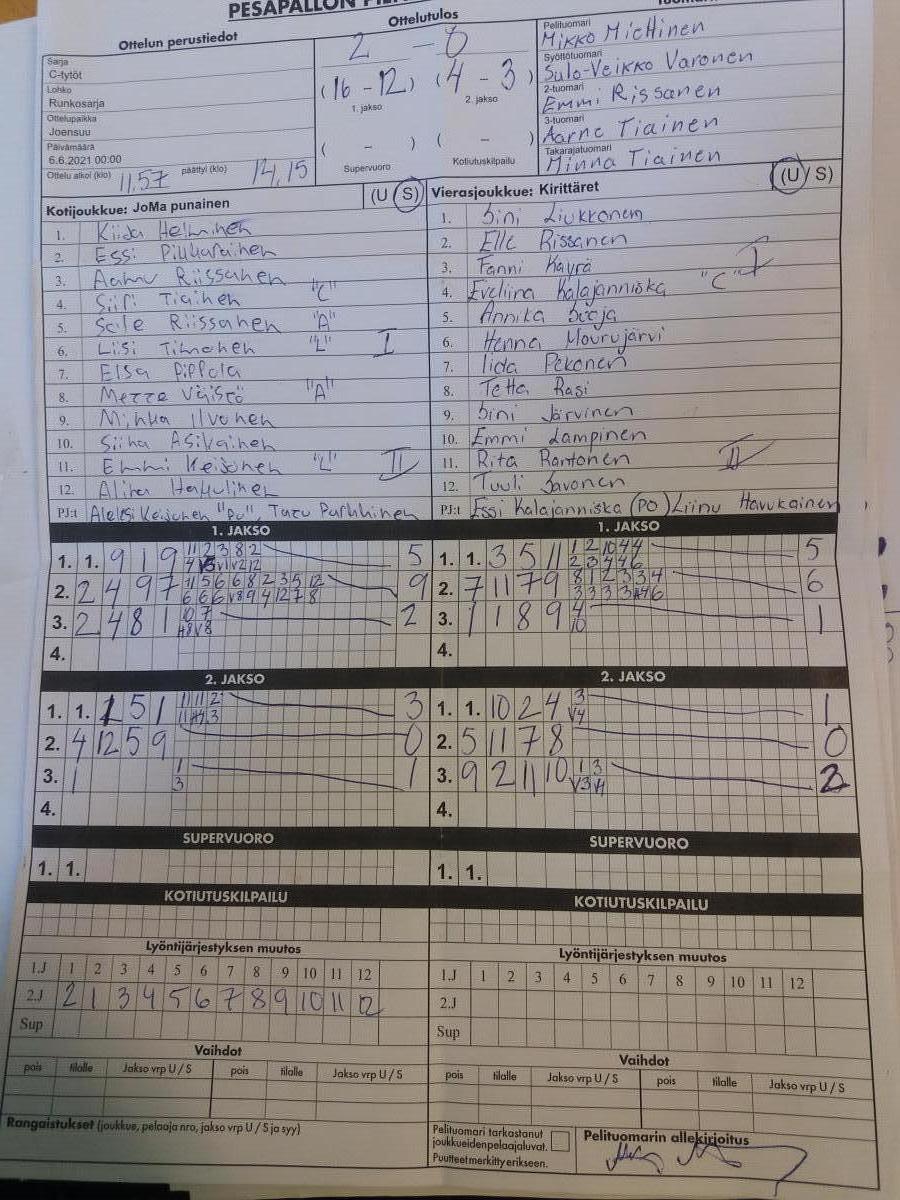 Ottelun perustiedot
Sarja
C-tytöt
Lohko
Runkosarja
Ottelupaikka
Joensuu
Päivämäärä
6.6.2021 00:00
Ottelu alkoi (klo) 11.57 päättyi (klo) 14,15
Ottelutulos
2 - 0
(16 - 12) (4 - 3)
1. jakso 2. jakso
( - ) ( - )
Supervuoro Kotiutuskilpailu
Pelituomari
Mikko Miettinen
Syöttötuomari
Sulo-Veikko Varonen
2-tuomari
Emmi Rissanen
3-tuomari
Aarne Tiainen
Takarajatuomari
Minna Tiainen
Kotijoukkue: JoMa punainen (U / S)
1. Kiida Helminen
2. Essi Pikkarainen
3. Aamu Riissanen
4. Siiri Tiainen "C"
5. Riissanen "A"
6. Liisi Timonen "L" I
7. Elsa Pippola
8. Väistö "A"
9. Minka Ilvonen
10. Siina Asikainen
11. Emmi Keijonen "L" II
12. Hakulinen
PJ:t Aleksi Keijonen "PU", Taru Parkkinen
Vierasjoukkue: Kirittäret (U / S)
1. Sini Liukkonen
2. Elle Rissanen
3. Fanni Käyrä I
4. Eveliina Kalajanniska "C"
5. Annika
6. Henna Mourujärvi
7. Iida Pekonen
8. Tetta Rasi
9. Sini Järvinen
10. Emmi Lampinen
11. Rita Rantonen II
12. Tuuli Savonen
PJ:t Essi Kalajanniska (PO) Liinu Havukainen
1. JAKSO
1. 1. 9 1 9 5
2. 2 4 9 7 9
3. 2 4 8 1 2
4.
1. JAKSO
1. 1. 3 5 11 5
2. 7 11 7 9 6
3. 1 1 8 9 1
4.
2. JAKSO
1. 1. 1 5 1 3
2. 4 12 5 9 0
3. 1 1
4.
2. JAKSO
1. 1. 10 2 4 1
2. 5 11 7 8 0
3. 9 2 11 10 2
4.
SUPERVUORO
1. 1.
SUPERVUORO
1. 1.
KOTIUTUSKILPAILU
KOTIUTUSKILPAILU
Lyöntijärjestyksen muutos
1.J 1 2 3 4 5 6 7 8 9 10 11 12
2.J 2 1 3 4 5 6 7 8 9 10 11 12
Sup
Lyöntijärjestyksen muutos
1.J 1 2 3 4 5 6 7 8 9 10 11 12
2.J
Sup
Vaihdot
pois tilalle Jakso vrp U / S pois tilalle Jakso vrp U / S
Vaihdot
pois tilalle Jakso vrp U / S pois tilalle Jakso vrp U / S
Rangaistukset (joukkue, pelaaja nro, jakso vrp U / S ja syy)
Pelituomari tarkastanut
joukkueiden pelaajaluvat.
Puutteet merkitty erikseen.
Pelituomarin allekirjoitus